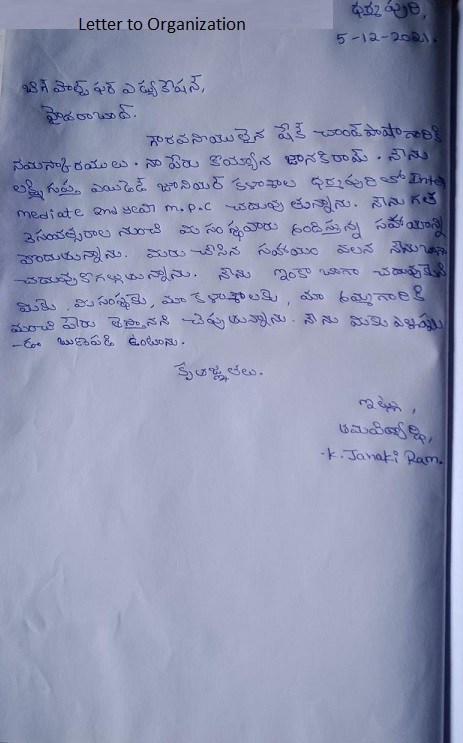 Letter to Organization
ధర్మపురి,
5-12-2021.
హైదరాబాద్.
గౌరవనీయులైన షేక్ చాంద్ పాషా గారికి
నమస్కారములు. నా పేరు జానకిరామ్. నేను
ఎయిడెడ్ జూనియర్ కళాశాల ధర్మపురి లో Inter
mediate 2nd year m.p.c చదువుతున్నాను. నేను గత
సంవత్సరాల నుంచి మీ సంస్థవారు అందిస్తున్న సహాయాన్ని
పొందుతున్నాను. మీరు చేసిన సహాయం వలన నేను
చదువుకోగలుగుతున్నాను. నేను ఇంకా బాగా చదువుకొని
మీకు, మీ సంస్థకు, మా కళాశాలకు, మా అమ్మగారికి
మంచి పేరు తెస్తానని చెప్పుతున్నాను. నేను మీకు ఎల్లప్పుడు
ఋణపడి ఉంటాను.
కృతజ్ఞతలు.
ఇట్లు,
తమ విద్యార్థి,
-K. Janaki Ram.